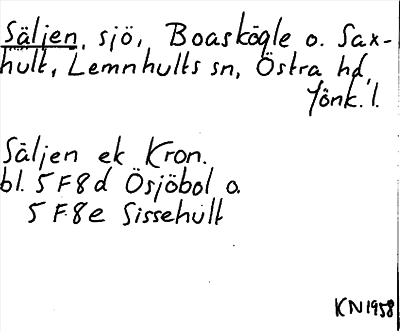 Säljen, sjö, Boaskögle o. Sax-
hult, Lemnhults sn, Östra hd,
Jönk. l.
Säljen ek Kron.
bl. 5 F 8 d Ösjöbol o.
5 F 8 e Sissehult
KN 1958